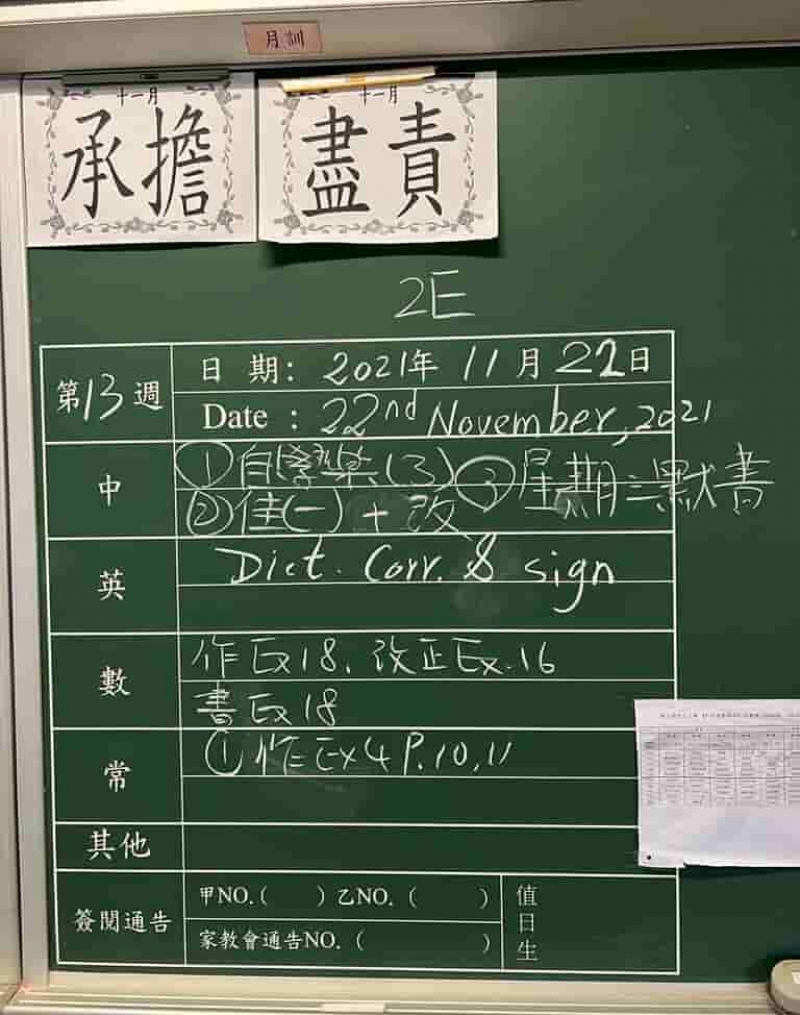 月訓
十一月
承擔
十一月
盡責
2E
第13週
日期: 2021年11月22日
Date : 22nd November, 2021
中
①自學樂(3) ③星期三默書
②佳(一)+改
英
Dict. Corr. & sign
數
作Ex18. 改正Ex.16
書Ex18
常
①作Ex4 P.10,11
其他
簽閱通告
甲NO.( ) 乙NO.( )
家教會通告NO.( )
值日生